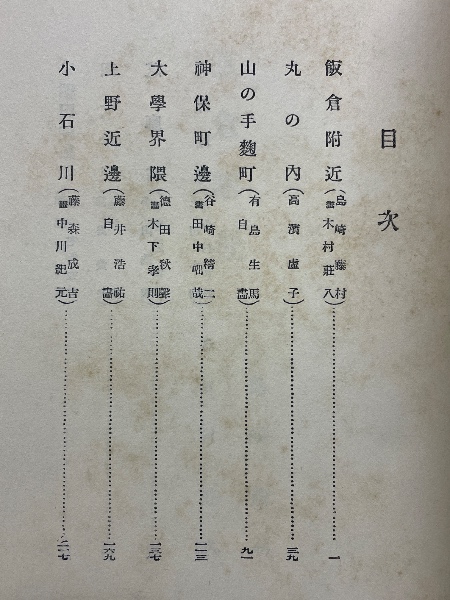 目次
飯倉附近(島崎藤村 畫木村莊八)……一
丸の內(高濱虛子)……三九
山の手麴町(有島生馬 自畫)……九一
神保町邊(谷崎精二 畫田中咄哉)……一一三
大學界隈(德田秋聲 畫木下孝則)……一三七
上野近邊(藤井浩祐 自畫)……一六九
小石川(藤森成吉 畫中川紀元)……二一七